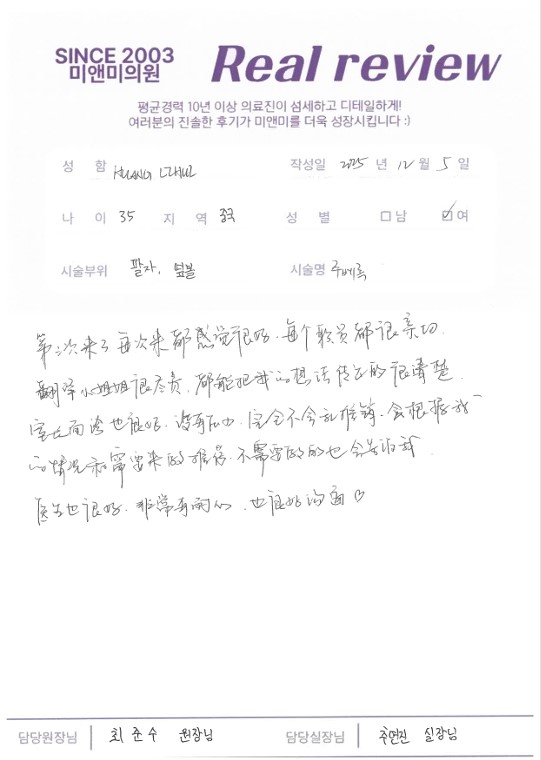 SINCE 2003
미앤미의원
Real review
평균경력 10년 이상 의료진이 섬세하고 디테일하게!
여러분의 진솔한 후기가 미앤미를 더욱 성장시킵니다 :)
성 함 HUANG 작성일 2025 년 12 월 5 일
나 이 35 지 역 중국 성 별 남 여
시술부위 팔자, 앞볼 시술명 쥬베룩
第二次来了 每次来都感觉很好. 每个职员都很亲切.
翻译小姐姐很尽责. 都能把我的想法传达的很清楚.
室长面诊也很好. 没有压力. 完全不会乱推销. 会根据我
的情况和需要来做推荐. 不需要做的也会告诉我.
医生也很好. 非常有耐心. 也很好沟通♡
담당원장님 최준수 원장님 담당실장님 추연진 실장님